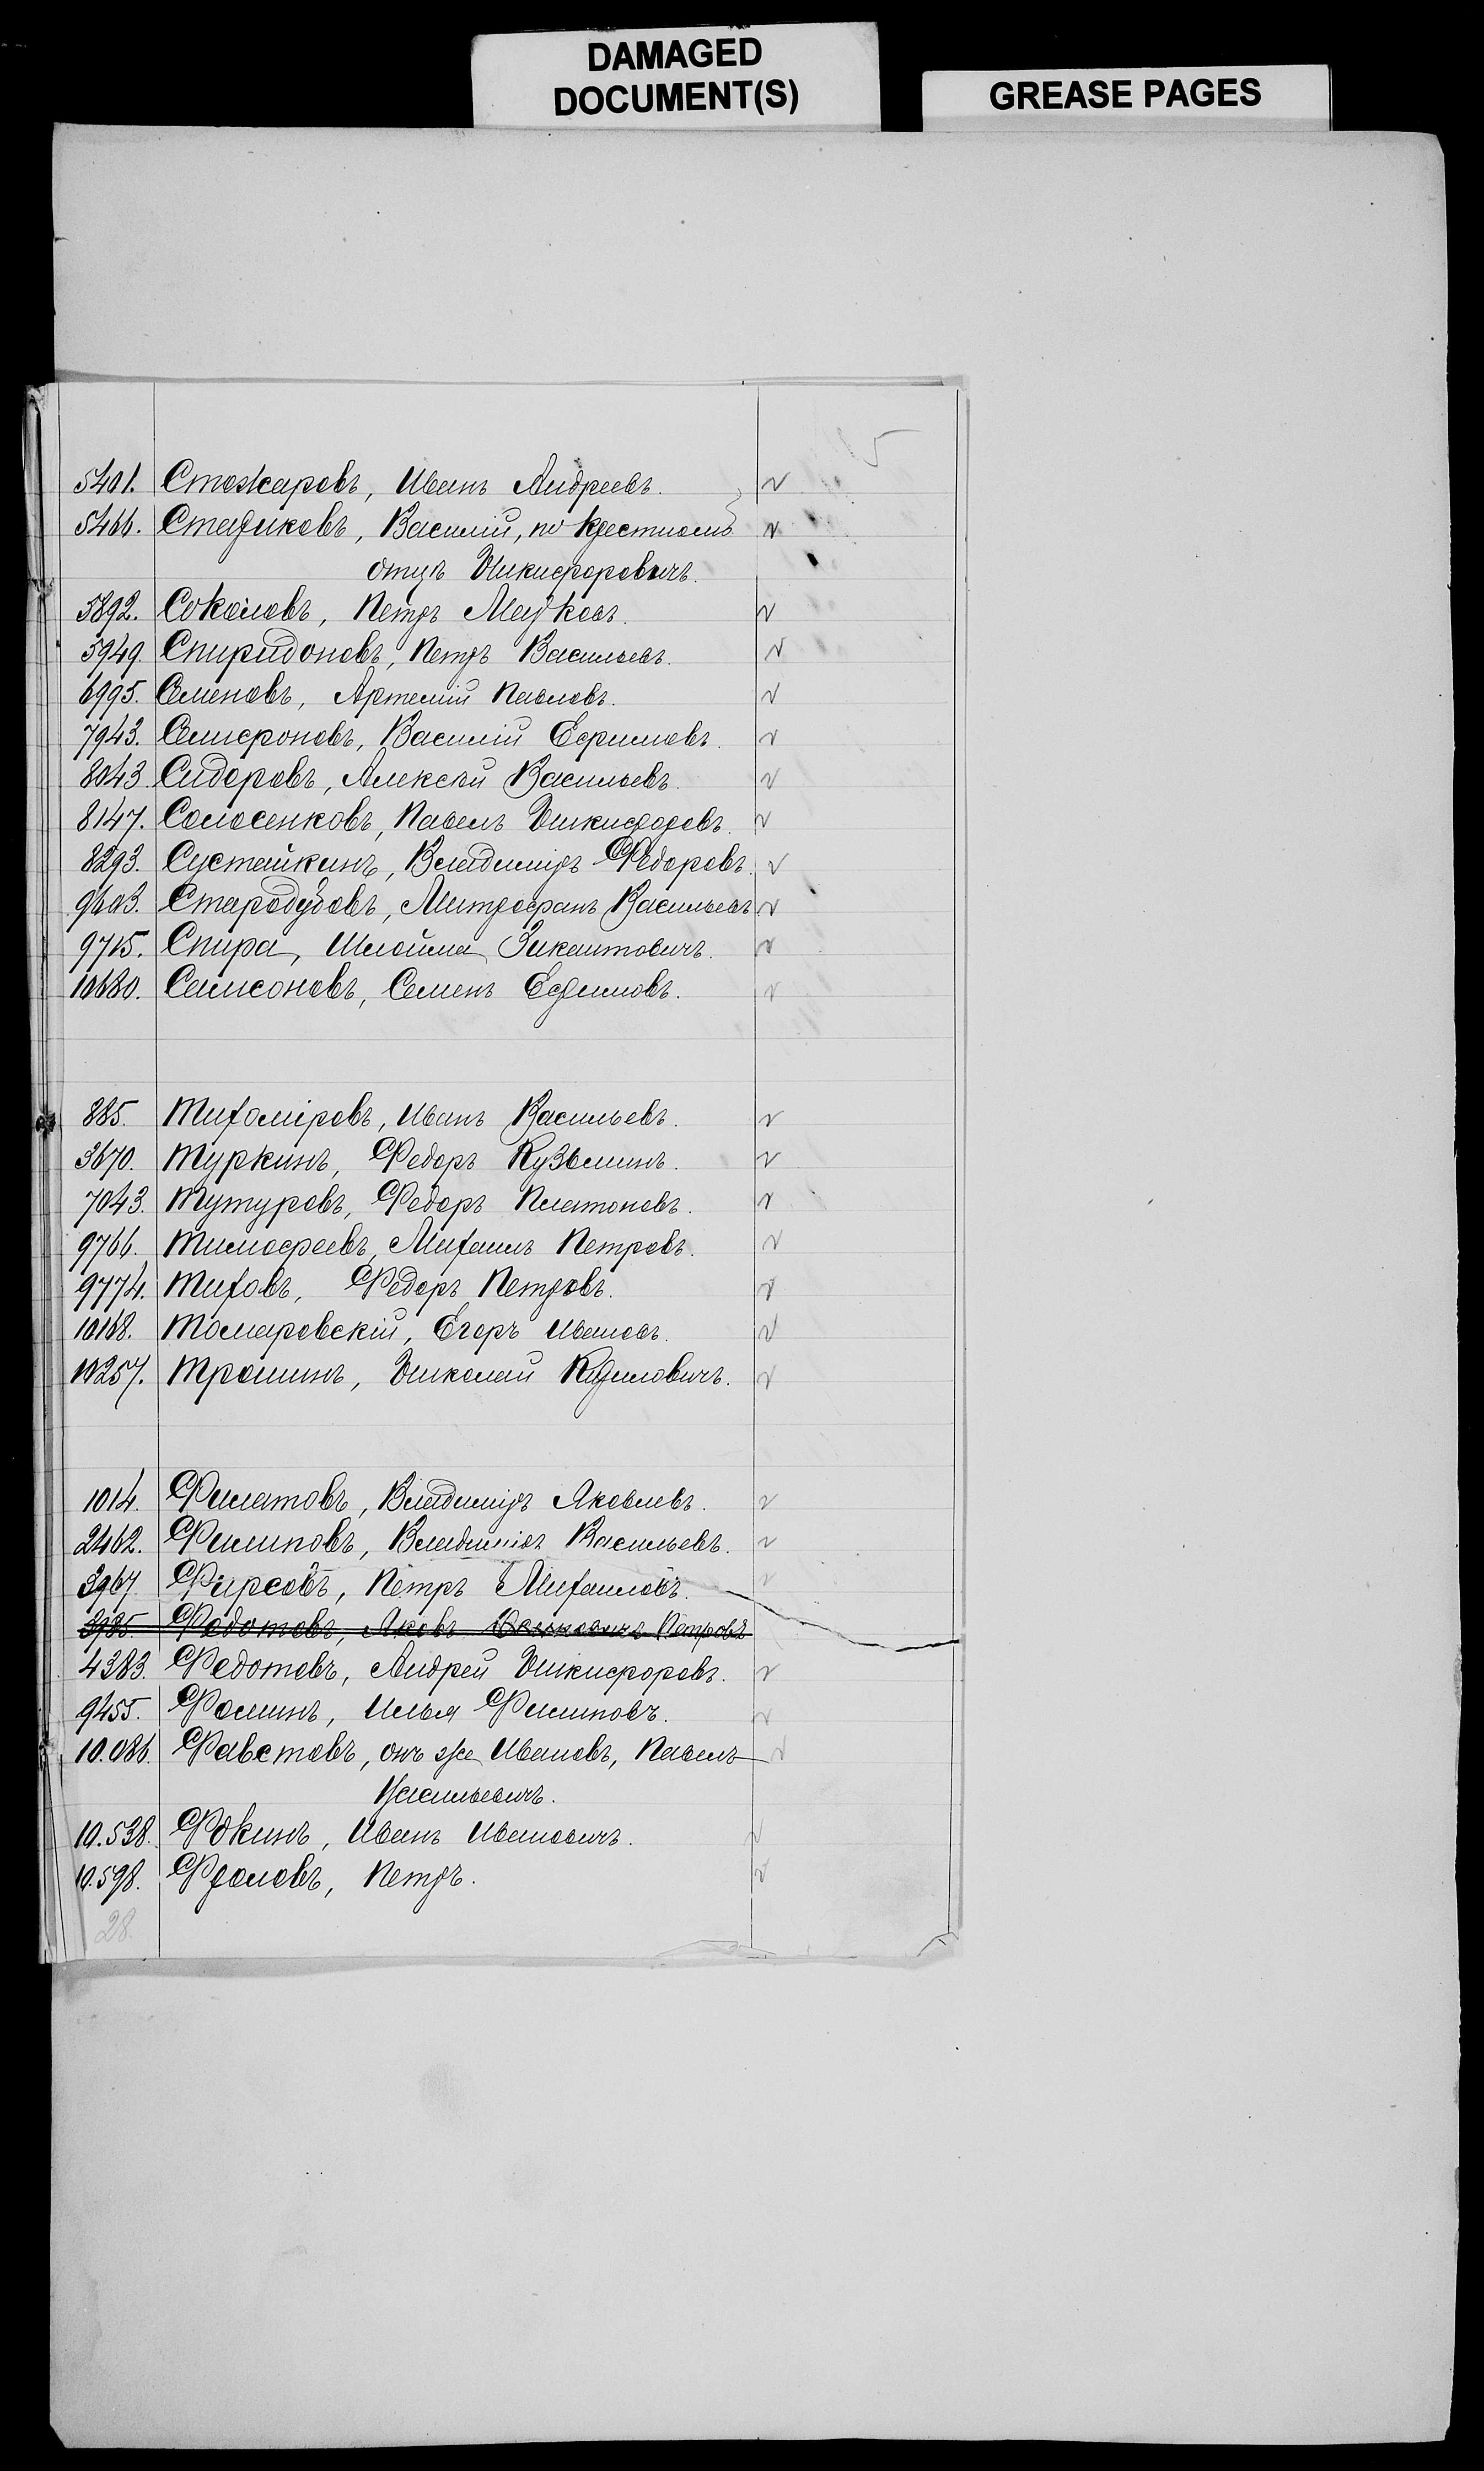 DAMAGED
DOCUMENT(S)
GREASE PAGES
5
5401. Стожаровъ, Иванъ Андреевъ. v
5466. Стариковъ, Василій, по крестному v
отцу Никифоровичъ.
5892. Соколовъ, Петръ Марковъ. v
5949. Спиридоновъ, Петръ Васильевъ. v
6995. Семеновъ, Артемій Павловъ. v
7943. Самсроновъ, Василій Ефимовъ. v
8043. Сидоровъ, Алексѣй Васильевъ. v
8147. Соло­сенковъ, Павелъ Никифоровъ. v
8293. Сустайкинъ, Владиміръ Федоровъ. v
9603. Стародубовъ, Митрофанъ Васильевъ v
9715. Спира, Шлойма v
10680. Самсоновъ, Семенъ Ефимовъ. v
885. Тихоміровъ, Иванъ Васильевъ. v
3670. Туркинъ, Федоръ Кузьминъ. v
7043. Тутуровъ, Федоръ Платоновъ. v
9766. Тимофеевъ, Михаилъ Петровъ. v
9774. Титовъ, Федоръ Петровъ. v
10168. Томаровскій, Егоръ Ивановъ. v
10257. Трошинъ, Николай Карловичъ. v
1014. Филатовъ, Владиміръ Яковлевъ. v
2462. Филиповъ, Владиміръ Васильевъ. v
3967. Фирсовъ, Петръ Михаиловъ. v
3985. Федотовъ, Яковъ Петровъ
4383. Федотовъ, Андрей Никифоровъ. v
9455. Фоминъ, Илья Филиповъ. v
10.086. Фавстовъ, онъ же Ивановъ, Павелъ v
Васильевичъ.
10.538. Фокинъ, Иванъ Ивановичъ. v
10.598. Фроловъ, Петръ. v
28.